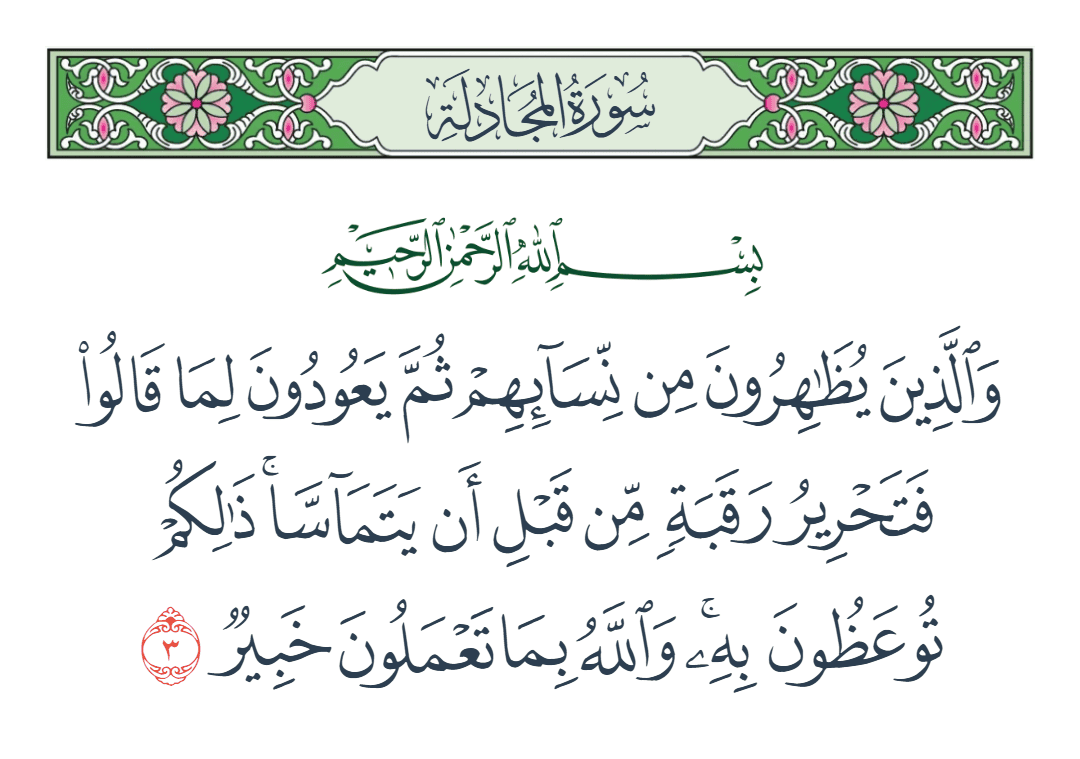 سُورَةُ المُجَادلَةِ
بِسْمِ ٱللَّهِ ٱلرَّحْمَٰنِ ٱلرَّحِيمِ
وَٱلَّذِينَ يُظَٰهِرُونَ مِن نِّسَآئِهِمْ ثُمَّ يَعُودُونَ لِمَا قَالُوا۟
فَتَحْرِيرُ رَقَبَةٍ مِّن قَبْلِ أَن يَتَمَآسَّا ۚ ذَٰلِكُمْ
تُوعَظُونَ بِهِۦ ۚ وَٱللَّهُ بِمَا تَعْمَلُونَ خَبِيرٌ ٣